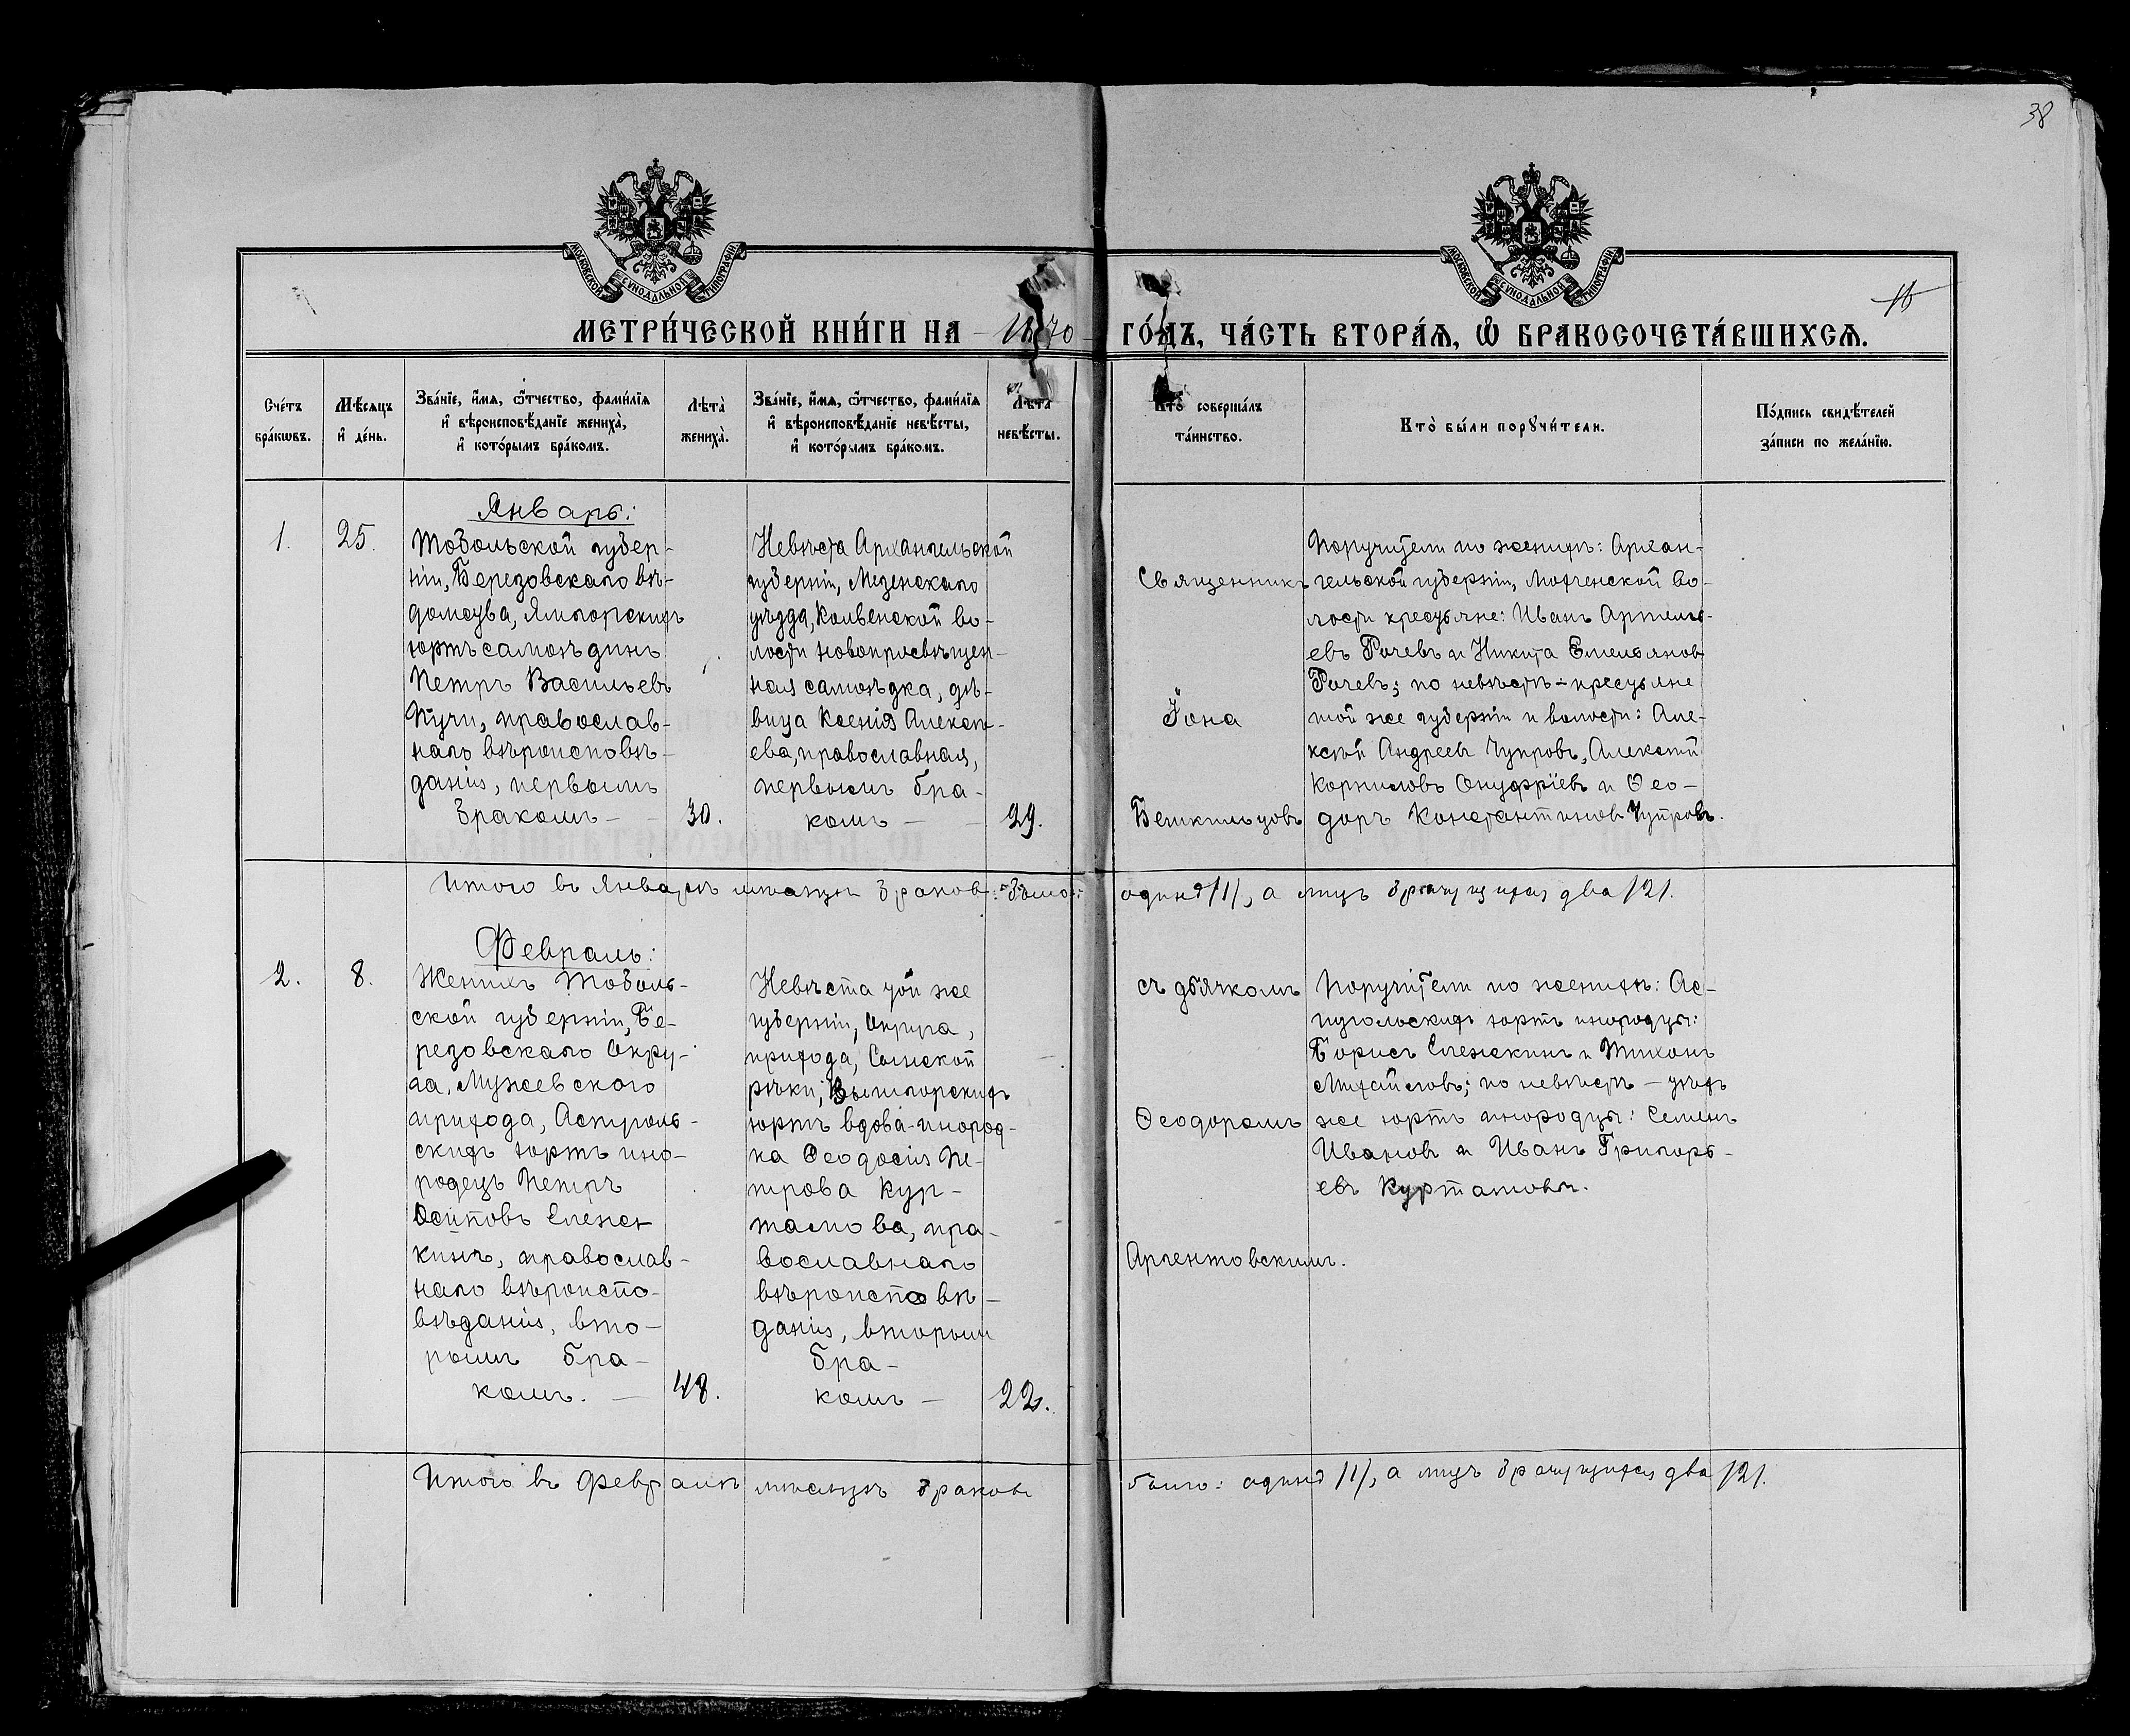 38
МОСКОВСКОЙ СѴНОДАЛЬНОЙ ТИПОГРАФІИ
МОСКОВСКОЙ СѴНОДАЛЬНОЙ ТИПОГРАФІИ
МЕТРИ́ЧЕСКОЙ КНИ́ГИ НА 1870
ГО́ДЪ, ЧА́СТЬ ВТОРА́Ѧ, Ѽ БРАКОСОЧЕТА́ВШИХСѦ.
Сче́тъ
бра́кѡвъ.
Мѣ́сяцъ
и҆ де́нь.
Зва́нїе, и҆́мя, ѻ҆́тчество, фами́лїя
и҆ вѣроисповѣ́данїе жениха̀,
и҆ кото́рымъ бра́комъ.
Лѣта̀
жениха̀.
Зва́нїе, и҆́мя, ѻ҆́тчество, фами́лїя
и҆ вѣроисповѣ́данїе невѣ́сты,
и҆ кото́рымъ бра́комъ.
Лѣта̀
невѣ́сты.
Кто̀ соверша́лъ
та́инство.
Кто̀ бы́ли порꙋчи́тели.
По́дпись свидѣ́телей
за́писи по жела́нїю.
Январь:
1.
25.
Тобольской губер-
ніи, Березовскаго вѣ-
домства, Ямгорскихъ
юртъ самоѣдинъ
Петръ Васильевъ
Пучи, православ-
наго вѣроисповѣ-
данія, первымъ
бракомъ —
30.
Невѣста Архангельской
губерніи, Мезенскаго
уѣзда, Колвенской во-
лости новопросвѣщен-
ная самоѣдка, дѣ-
вица Ксенія Алексѣ-
ева, православная,
первымъ бра-
комъ —
29.
Священникъ
Іона
Бешкильцовъ
Поручители по женихѣ: Архан-
гельской губерніи, Мохченской во-
лости крестьяне: Иванъ Артемь-
евъ Рочевъ и Никита Емельяновъ
Рочевъ; по невѣстѣ — крестьяне
той же губерніи и волости: Але-
ксѣй Андреевъ Чупровъ, Алексѣй
Корниловъ Онуфріевъ и Ѳео-
доръ Константиновъ Чупровъ.
Итого въ Январѣ мѣсяцѣ браковъ было:
одинъ /1/, а лицъ брачущихся два /2/.
Февраль:
2.
8.
Женихъ Тоболь-
ской губерніи, Бе-
резовскаго Окру-
га, Мужевскаго
прихода, Аспуголь-
скихъ юртъ ино-
родецъ Петръ
Осиповъ Еленс-
кинъ, православ-
наго вѣроиспо-
вѣданія, вто-
рымъ бра-
комъ. —
48.
Невѣста той же
губерніи, Округа,
прихода, Сынской
рѣки, юртъ вдова-инород-
ка Ѳеодосія Пе-
трова Кур-
тамова, пра-
вославнаго
вѣроисповѣ-
данія, вторымъ
бра-
комъ —
22.
съ дьячкомъ
Ѳеодоромъ
Аргентовскимъ.
Поручители по женихѣ: Ас-
пугольскихъ юртъ инородцы:
Борисъ и Тихонъ
Михайловъ; по невѣстѣ — тѣхъ
же юртъ инородцы: Семенъ
Ивановъ и Иванъ Григорь-
евъ Куртамовы.
Итого въ Февралѣ мѣсяцѣ браковъ
было: одинъ /1/, а лицъ брачущихся два /2/.